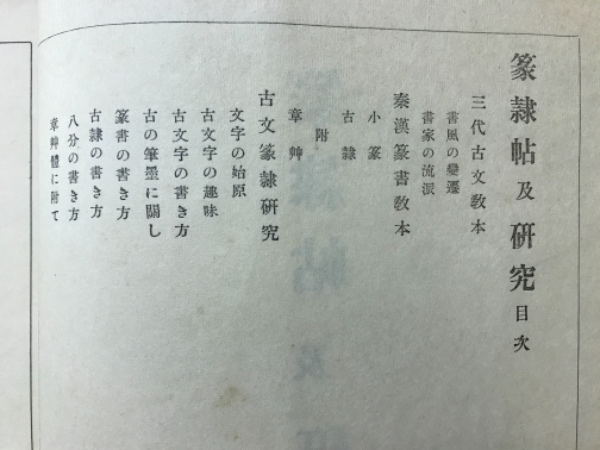 篆隷帖及研究目次
三代古文教本
書風の變遷
書家の流派
秦漢篆書教本
小篆
古隷
附
章艸
古文篆隷研究
文字の始原
古文字の趣味
古文字の書き方
古の筆墨に關し
篆書の書き方
古隷の書き方
八分の書き方
章艸體に附て